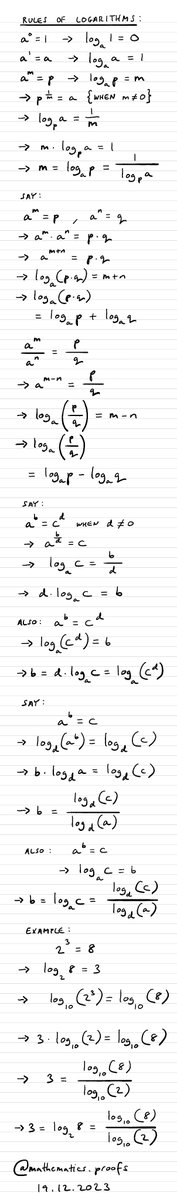 RULES OF LOGARITHMS:
a⁰ = 1 → logₐ 1 = 0
a¹ = a → logₐ a = 1
aᵐ = p → logₐ p = m
→ p^(1/m) = a {WHEN m ≠ 0}
→ logₚ a = 1/m
→ m · logₚ a = 1
→ m = logₐ p = 1/(logₚ a)
SAY:
aᵐ = p , aⁿ = q
→ aᵐ · aⁿ = p · q
→ a^(m+n) = p · q
→ logₐ(p·q) = m+n
→ logₐ(p·q)
= logₐ p + logₐ q
aᵐ/aⁿ = p/q
→ a^(m-n) = p/q
→ logₐ(p/q) = m-n
→ logₐ(p/q)
= logₐ p - logₐ q
SAY:
a^b = c^d WHEN d ≠ 0
→ a^(b/d) = c
→ logₐ c = b/d
→ d · logₐ c = b
ALSO: a^b = c^d
→ logₐ(c^d) = b
→ b = d · logₐ c = logₐ(c^d)
SAY:
a^b = c
→ log_d(a^b) = log_d(c)
→ b · log_d a = log_d(c)
→ b = log_d(c)/log_d(a)
ALSO: a^b = c
→ logₐ c = b
→ b = logₐ c = log_d(c)/log_d(a)
EXAMPLE:
2³ = 8
→ log₂ 8 = 3
→ log₁₀(2³) = log₁₀(8)
→ 3 · log₁₀(2) = log₁₀(8)
→ 3 = log₁₀(8)/log₁₀(2)
→ 3 = log₂ 8 = log₁₀(8)/log₁₀(2)
@mathematics.proofs
19.12.2023